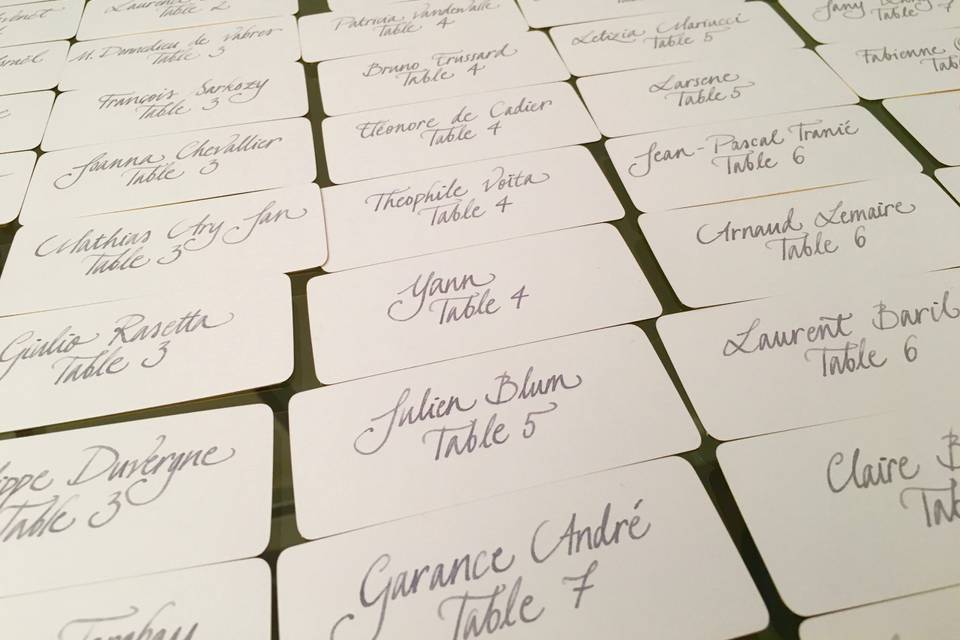 Table 2
M. Donnedieu de Vabres
Table 3
François Sarkozy
Table 3
Joanna Chevallier
Table 3
Mathias Ary Jan
Table 3
Giulio Rasetta
Table 3
Duvergne
Table 3
Patricia Vandevalle
Table 4
Bruno Trussard
Table 4
Eléonore de Cadier
Table 4
Théophile Voïta
Table 4
Yann
Table 4
Julien Blum
Table 5
Garance André
Table 7
Letizia Mariucci
Table 5
Larsene
Table 5
Jean-Pascal Tranié
Table 6
Arnaud Lemaire
Table 6
Laurent Baril
Table 6
Claire
Table 7
Fabienne